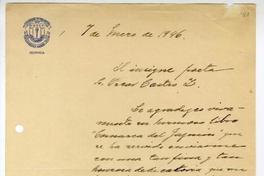 7 de Enero de 1946.
Al insigne poeta
D. Oscar Castro Z.
Le agradezco viva-
mente su hermoso libro
"Comarca del Jazmín" que
se ha servido enviarme
con una tan fina y tan
honrosa dedicatoria que me